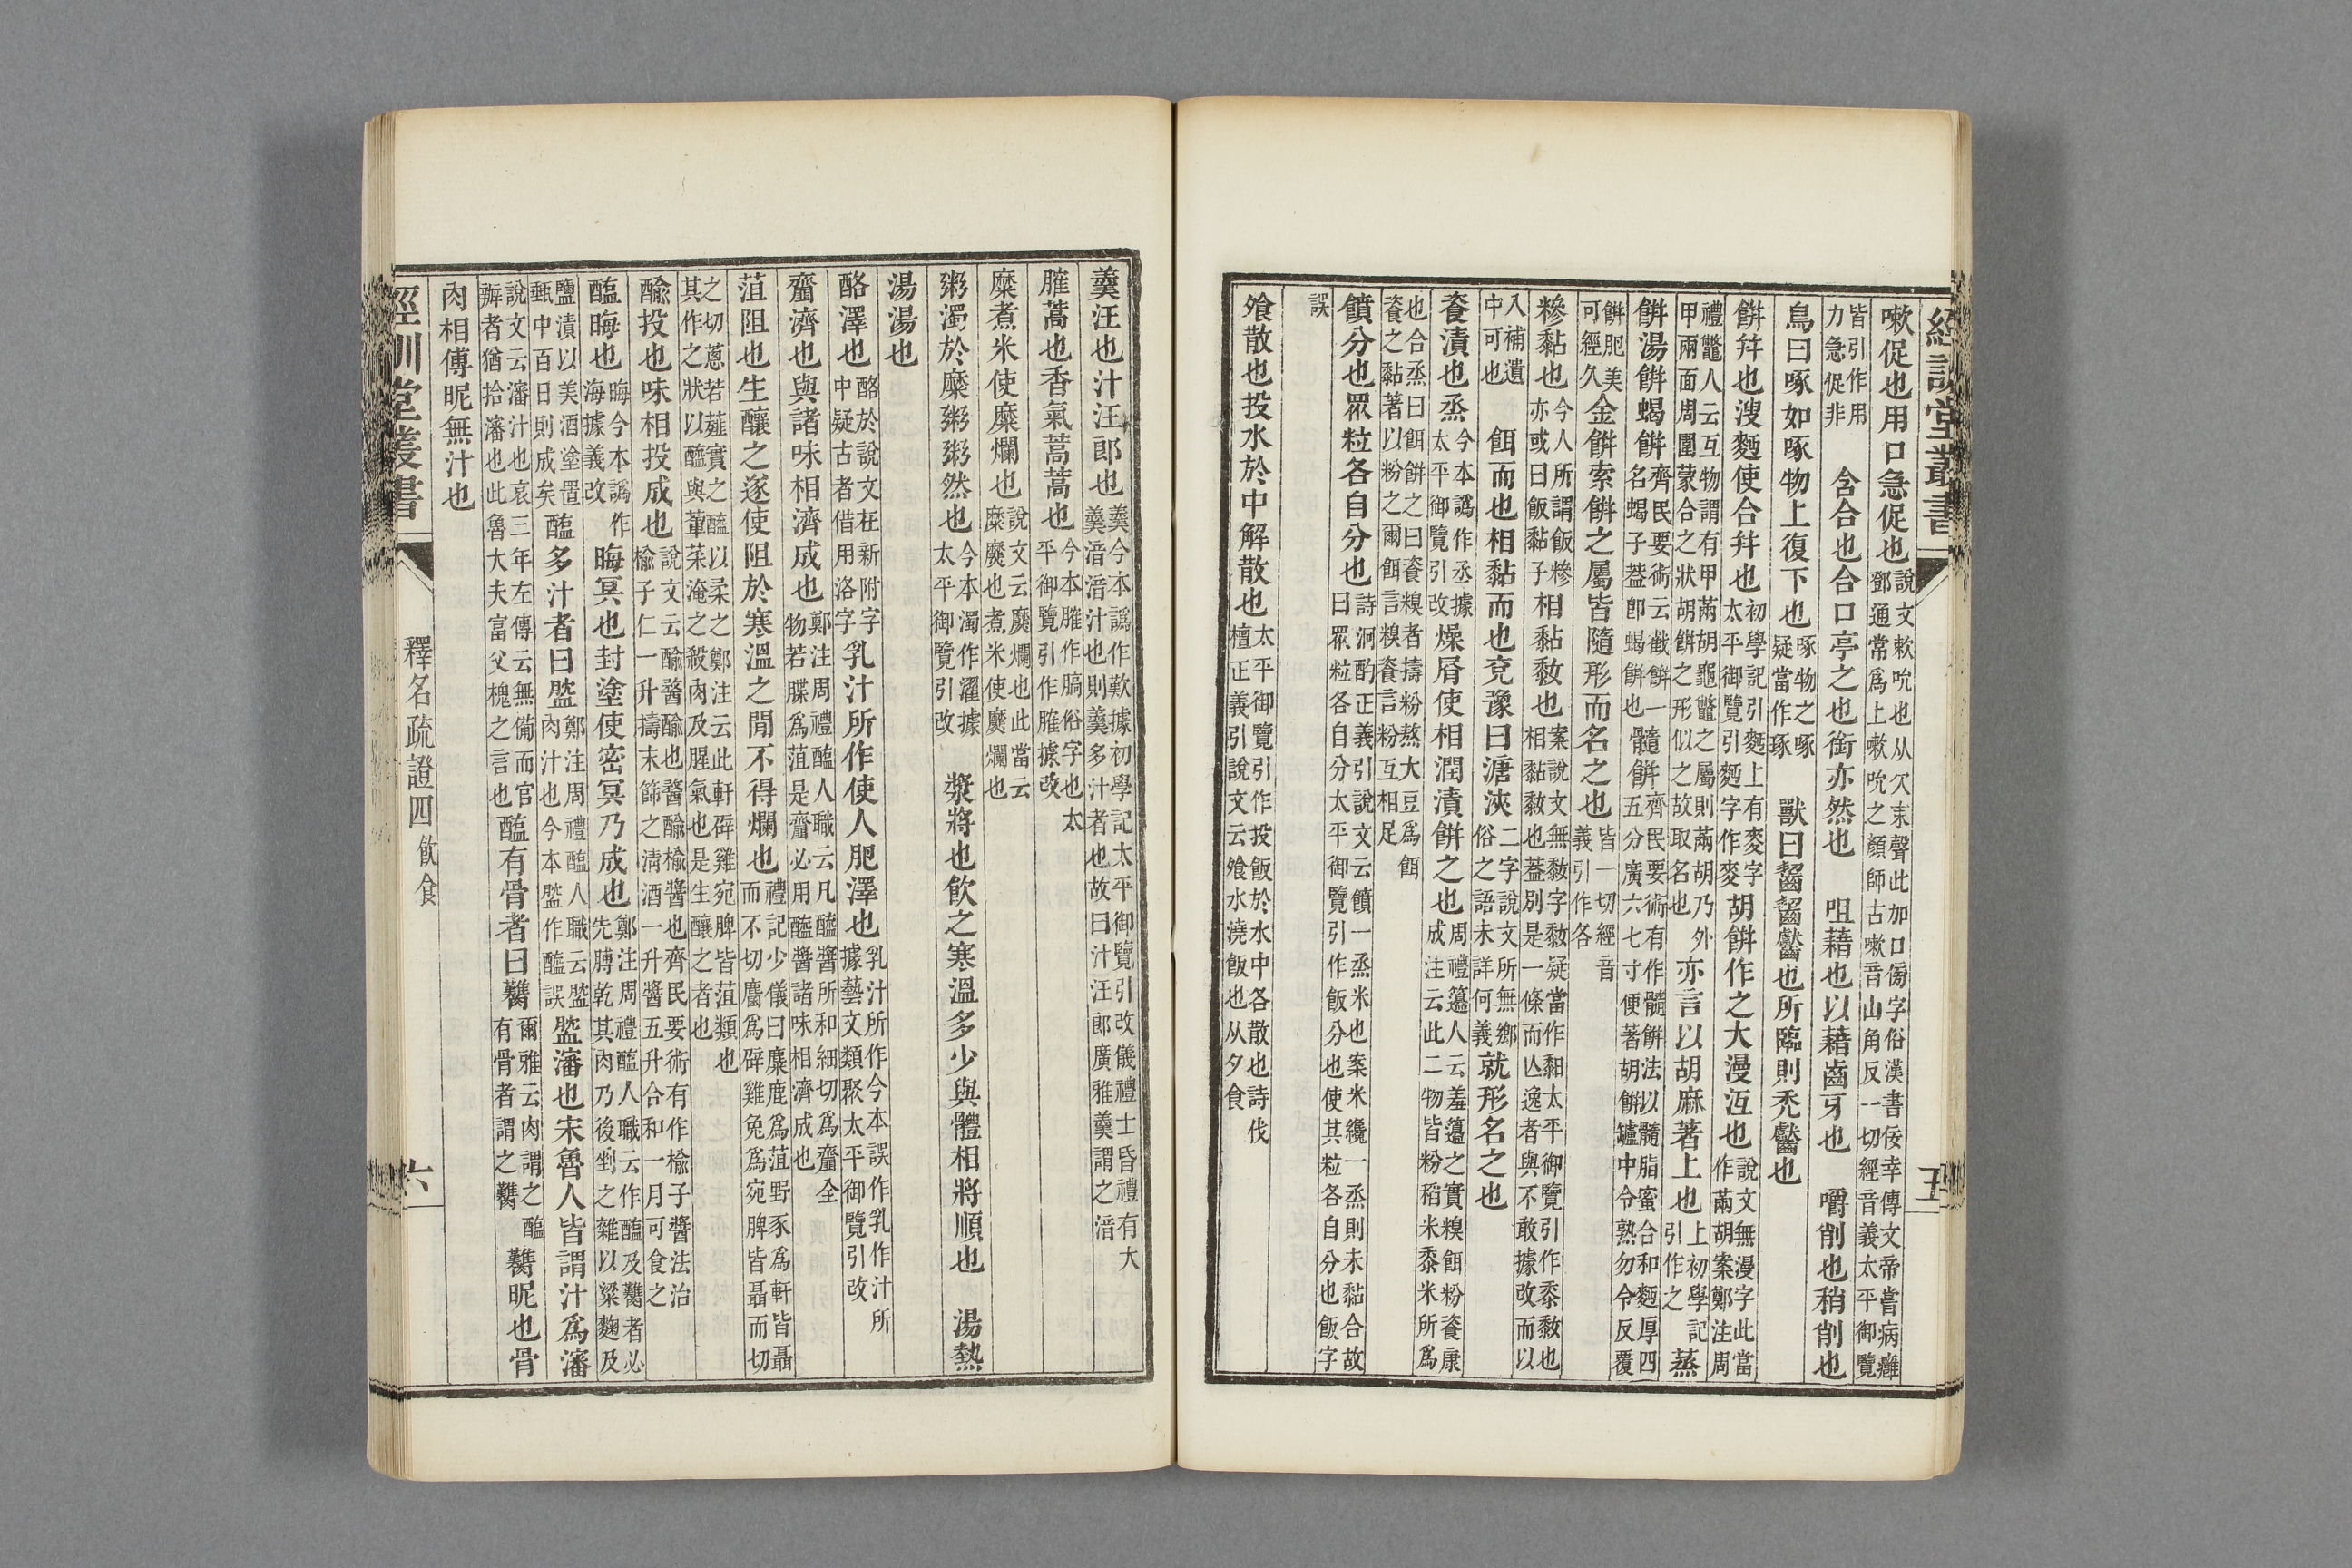 經訓堂叢書 五
嗽促也用口急促也說文軟吮也从欠束聲此加口㑂字俗漢書佞幸傳文帝嘗病癰
鄧通常爲上嗽吮之顏師古嗽音山角反一切經音義太平御覽
皆引作用
力急促非 含合也合口亭之也銜亦然也 咀藉也以藉齒牙也 嚼削也稍削也
鳥曰啄如啄物上復下也啄物之啄
疑當作琢 獸曰齧齧齾也所臨則禿齾也
餅并也溲麪使合并也初學記引麪上有麥字
太平御覽引麪字作麥胡餅作之大漫沍也說文無漫字此當
作㒼胡案鄭注周
禮鼈人云互物謂有甲㒼胡龜鼈之屬則㒼胡乃外
甲兩面周圍蒙合之狀胡餅之形似之故取名也亦言以胡麻著上也上初學記
引作之蒸
餅湯餅蝎餅齊民要術云截餅一
名蝎子蓋卽蝎餅也髓餅齊民要術有作髓餅法以髓脂蜜合和麪厚四
五分廣六七寸便著胡餅罏中令熟勿令反覆
餅肥美
可經久金餅索餅之屬皆隨形而名之也皆一切經音
義引作各
糝黏也今人所謂飯糝
亦或曰飯黏子相黏㪏也案說文無㪏字㪏疑當作䵑太平御覽引作黍㪏也
相黏㪏也蓋別是一條而亾逸者與不敢據改而以
入補遺
中可也 餌而也相黏而也兗豫曰溏浹二字說文所無鄉
俗之語未詳何義就形名之也
餈漬也烝今本譌作丞據
太平御覽引改燥屑使相潤漬餅之也周禮籩人云羞籩之實糗餌粉餈康
成注云此二物皆粉稻米黍米所爲
也合烝曰餌餅之曰餈糗者擣粉熬大豆爲餌
餈之黏著以粉之爾餌言糗餈言粉互相足
饙分也眾粒各自分也詩泂酌正義引說文云饙一烝米也案米纔一烝則未黏合故
曰眾粒各自分太平御覽引作飯分也使其粒各自分也飯字
誤
飧散也投水於中解散也太平御覽引作投飯於水中各散也詩伐
檀正義引說文云飧水澆飯也从夕食
羹汪也汁汪郎也羹今本譌作歎據初學記太平御覽引改儀禮士昏禮有大
羹湇湇汁也則羹多汁者也故曰汁汪郎廣雅羹謂之湇
臛蒿也香氣蒿蒿也今本臛作膈俗字也太
平御覽引作臛據改
糜煮米使糜爛也說文云㸏爛也此當云
糜㸏也煮米使㸏爛也
粥濁於糜粥粥然也今本濁作濯據
太平御覽引改 漿將也飮之寒溫多少與體相將順也 湯熱
湯湯也
酪澤也酪於說文在新附字
中疑古者借用洛字乳汁所作使人肥澤也乳汁所作今本誤作乳作汁所
據藝文類聚太平御覽引改
齏濟也與諸味相濟成也鄭注周禮醢人職云凡醢醬所和細切爲齏全
物若䐑爲菹是齏必用醢醬諸味相濟成也
菹阻也生釀之遂使阻於寒溫之閒不得爛也禮記少儀曰麋鹿爲菹野豕爲軒皆聶
而不切麕爲辟雞兔爲宛脾皆聶而切
之切蔥若薤實之醯以柔之鄭注云此軒辟雞宛脾皆菹類也
其作之狀以醯與葷菜淹之殺肉及腥氣也是生釀之者也
䤅投也味相投成也說文云䤅醬䤅也醬䤅楡醬也齊民要術有作楡子醬法治
楡子仁一升擣末篩之淸酒一升醬五升合和一月可食之
醢晦也晦今本譌作
海據義改晦冥也封塗使密冥乃成也鄭注周禮醢人職云作醢及臡者必
先膊乾其肉乃後剉之雜以粱麴及
鹽漬以美酒塗置
甀中百日則成矣醢多汁者曰䤈鄭注周禮醢人職云䤈
肉汁也今本䤈作醢誤䤈瀋也宋魯人皆謂汁爲瀋
說文云瀋汁也哀三年左傳云無備而官
辦者猶拾瀋也此魯大夫富父槐之言也醢有骨者曰臡爾雅云肉謂之醢
有骨者謂之臡臡昵也骨
肉相傅昵無汁也
經訓堂叢書 釋名疏證四飮食 六